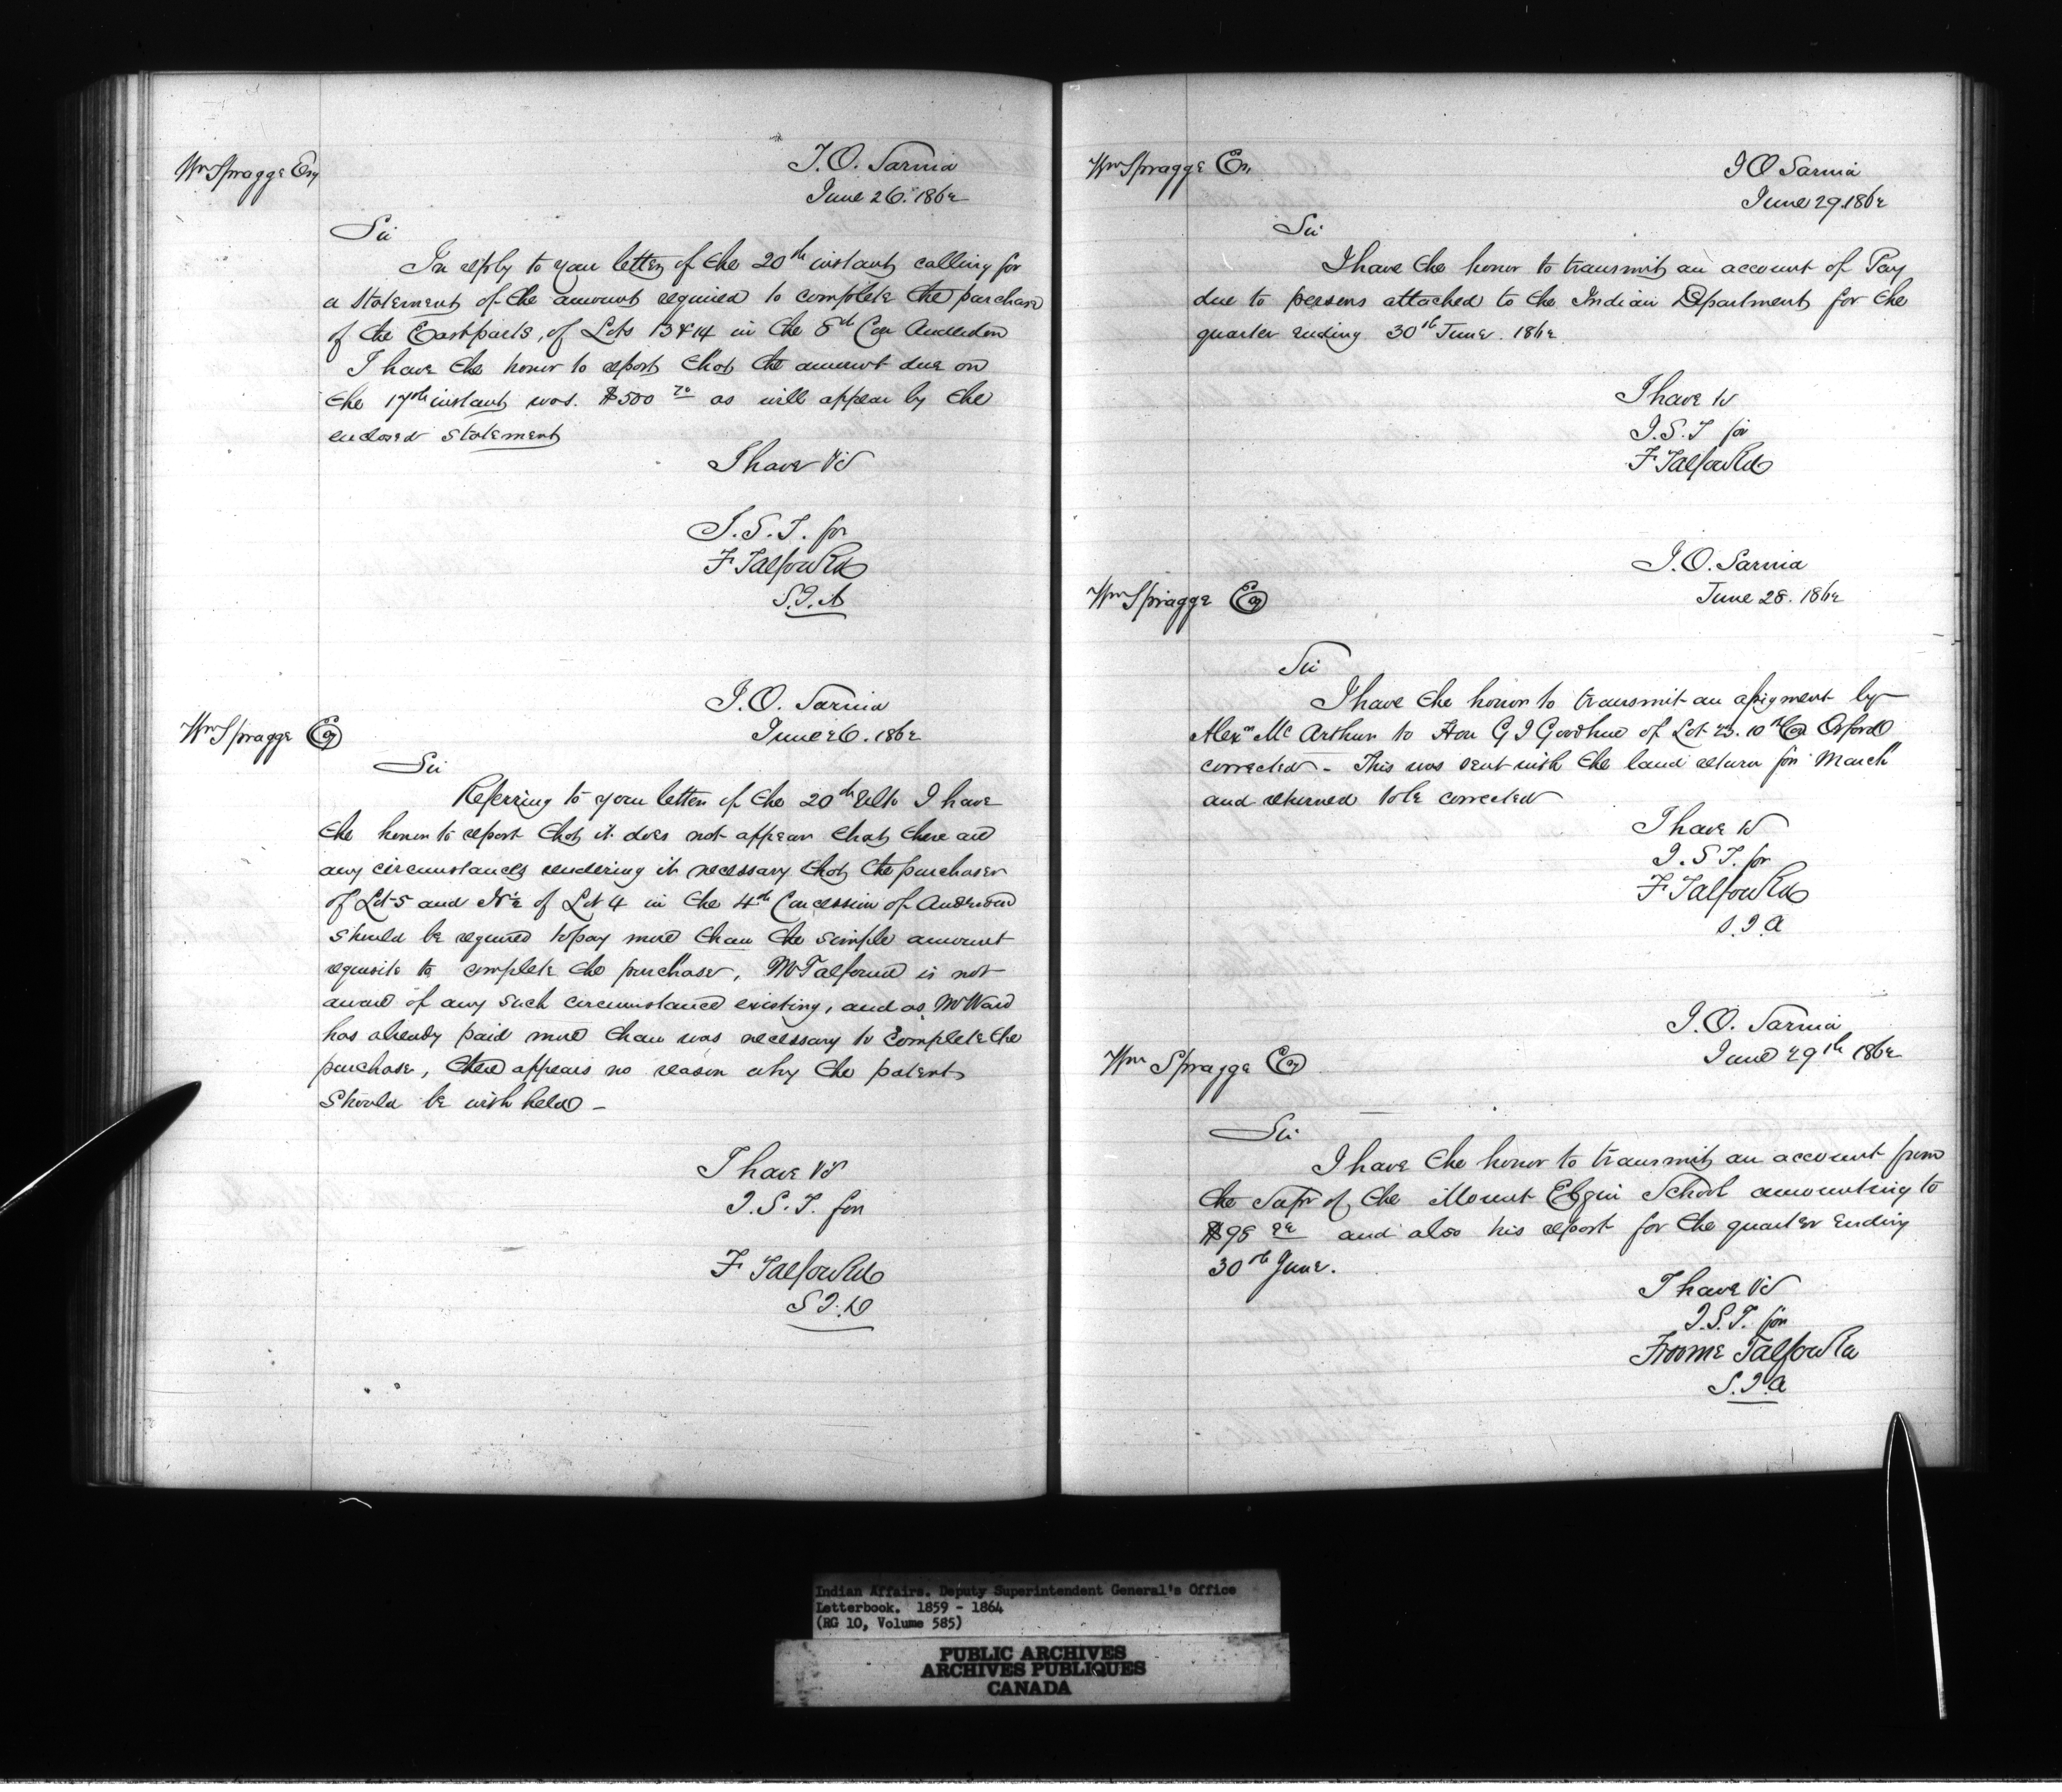 Wm Spragge Esq
I.O. Sarnia
June 26. 1862
Sir
In reply to your letter of the 20th instant calling for
a statement of the amount required to complete the purchase
of the East parts, of Lots 13 & 14 in the 8th Con Anderdon
I have the honor to report that the amount due on
the 17th instant was. $500 70 as will appear by the
enclosed statement
I have &c
I.S.T. for
F Talfourd
S.I.A
Wm Spragge Esq
I.O. Sarnia
June 26. 1862
Sir
Referring to your letter of the 20th Ulto I have
the honor to report that it does not appear that there are
any circumstances rendering it necessary that the purchaser
of Lot 5 and N½ of Lot 4 in the 4th Concession of Anderdon
should be required to pay more than the simple amount
requisite to complete the purchase, Mr Talfourd is not
aware of any such circumstance existing, and as Mr Ward
has already paid more than was necessary to complete the
purchase, there appears no reason why the patent
should be with held –
I have &c
I.S.T. for
F Talfourd
S I.A
Wm Spragge Esq
I O Sarnia
June 29. 1862
Sir
I have the honor to transmit an account of Pay
due to persons attached to the Indian Department for the
quarter ending 30th June. 1862
I have &c
I.S.T for
F Talfourd
Wm Spragge Esq
I.O. Sarnia
June 28. 1862
Sir
I have the honor to transmit an assignment by
Alexr Mc Arthur to Hon G I Goodhue of Lot 23. 10th Con Orford
corrected – This was sent with the land return for March
and returned to be corrected
I have &c
I.S T. for
F Talfourd
S.I.A
Wm Spragge Esq
I.O. Sarnia
June 29th 1862
Sir
I have the honor to transmit an account from
the Supt of the Mount Elgin School amounting to
$98 and also his report for the quarter ending
30th June.
I have &c
I.S.T. for
Froome Talfourd
S.I.A
Indian Affairs. Deputy Superintendent General's Office
Letterbook. 1859 - 1864
(RG 10, Volume 585)
PUBLIC ARCHIVES
ARCHIVES PUBLIQUES
CANADA